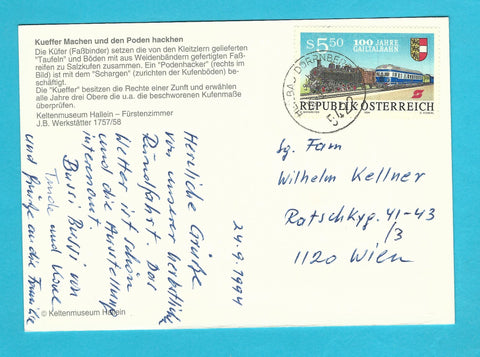 Kueffer Machen und den Poden hackhen
Die Küfer (Faßbinder) setzen die von den Kleitzlern gelieferten
"Taufeln" und Böden mit aus Weidenbändern gefertigten Faß-
reifen zu Salzkufen zusammen. Ein "Podenhacker" (rechts im
Bild) ist mit dem "Schargen" (zurichten der Kufenböden) be-
schäftigt.
Die "Kueffer" besitzen die Rechte einer Zunft und erwählen
alle Jahre drei Obere die u.a. die beschworenen Kufenmaße
überprüfen.
Keltenmuseum Hallein – Fürstenzimmer
J.B. Werkstätter 1757/58
24.9.1994
Herzliche Grüße
von unserer herbstlichen
Rundfahrt. Das
Wetter ist schön
und die Ausstellungen
interessant.
Bussi Bussi von
und
und Grüße an die Familie
© Keltenmuseum Hallein
S5.50 100 JAHRE
GAILTALBAHN
REPUBLIK ÖSTERREICH
Sg. Fam
Wilhelm Kellner
Ratschkyg. 41-43
/3
1120 Wien